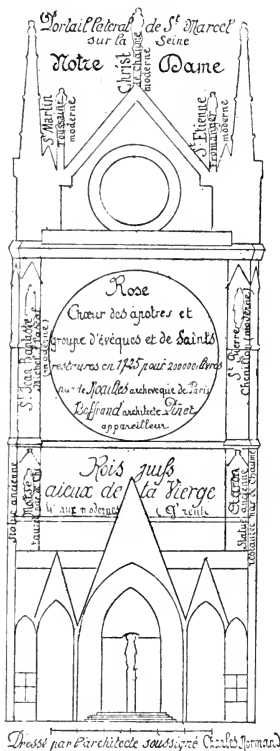 Portail latéral de St Marcel
sur la Seine
Notre Dame
Christ
de Chapuy
moderne
St Martin
Toussaint
moderne
St Etienne
Fromanger
moderne
Rose
Chœur des apotres et
groupe d'évèques et de Saints
restaurés en 1725 pour 200000 livres
par de Noailles archevèque de Paris
Boffrand architecte Pinet
appareilleur
St Jean Baptiste
(moderne)
St Pierre
Chenillon (moderne)
Rois juifs
aieux de la Vierge
modernes
Statue ancienne
Moïse
Aaron
Statue ancienne
Dressé par l'architecte soussigné Charles Normand